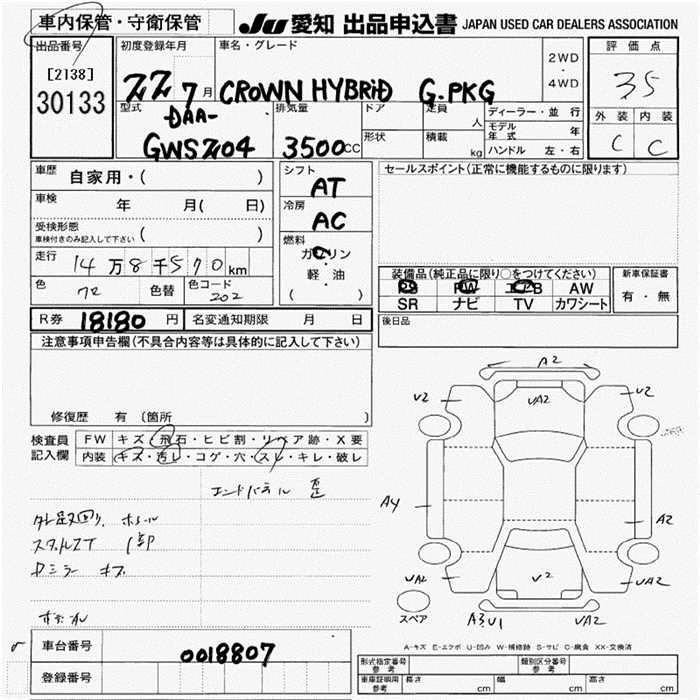 車内保管・守衛保管 JU 愛知 出品申込書 JAPAN USED CAR DEALERS ASSOCIATION
出品番号
[2138]
30133
初度登録年月
22 7月
車名・グレード
CROWN HYBRID G.PKG
2WD
・
4WD
評価点
3.5
外装 内装
C C
型式
DAA-
GWS204
排気量
3500cc
ドア
形状
定員 人
積載 kg
ディーラー・並行
モデル年式 年
ハンドル 左・右
車歴 自家用・( )
車検 年 月( 日)
受検形態
車検付きのみ記入して下さい ( )
走行 14万8千570km
色 色替 色コード 202
シフト
AT
冷房
AC
燃料
ガソリン
・
軽・油
( )
セールスポイント(正常に機能するものに限ります)
装備品(純正品に限り○をつけてください)
PS PW エアB AW
SR ナビ TV カワシート
新車保証書
有・無
R券 18180 円 名変通知期限 月 日
後日品
注意事項申告欄(不具合内容等は具体的に記入して下さい)
修復歴 有 (箇所 )
検査員記入欄
FW キズ・飛石・ヒビ割・リペア跡・X要
内装 キズ・汚レ・コゲ・穴・スレ・キレ・破レ
エンドパネル 歪
ミラー キズ
A2
V2 UA2 V2
A4 A2
UA2 V2 UA2
スペア A3.U1 UA2
A-キズ E-エクボ U-凹み W-補修跡 S-サビ C-腐食 XX-交換済
車台番号 0018807
登録番号
形式指定番号
参考
類別区分番号
参考
車庫証明用
参考
長さ cm 幅 cm 高さ cm